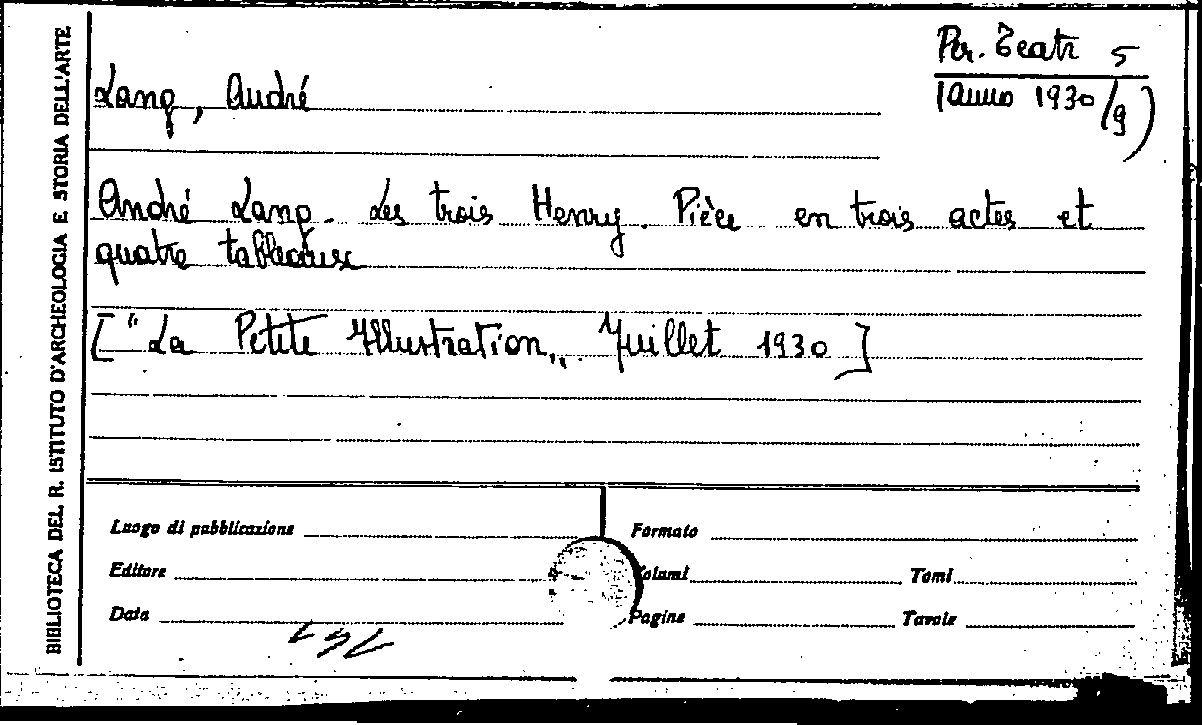 BIBLIOTECA DEL R. ISTITUTO D'ARCHEOLOGIA E STORIA DELL'ARTE
Per. Teatr 5
(Anno 1930/9)
Lang, André
André Lang. Les trois Henry. Pièce en trois actes et
quatre tableaux
["La Petite Illustration„ Juillet 1930]
Luogo di pubblicazione
Formato
Editore
Volumi
Tomi
Data
Pagine
Tavole